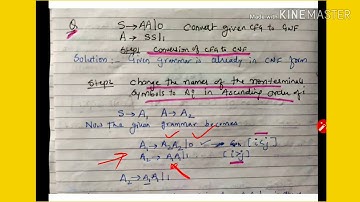 Made with KINEMASTER
Q. S → AA|0 Convert given CFG to GNF
A → SS|1
Step1 Conversion of CFG to CNF
Solution:- Given grammar is already in CNF form
Step2 Change the names of the non-terminal
Symbols to Ai in Ascending order of i
S → A1 A → A2
Now the given grammar becomes
A1 → A2A2|0 [i<j]
A2 → A1A1|1 [i>j]
A2 → A1A1|1